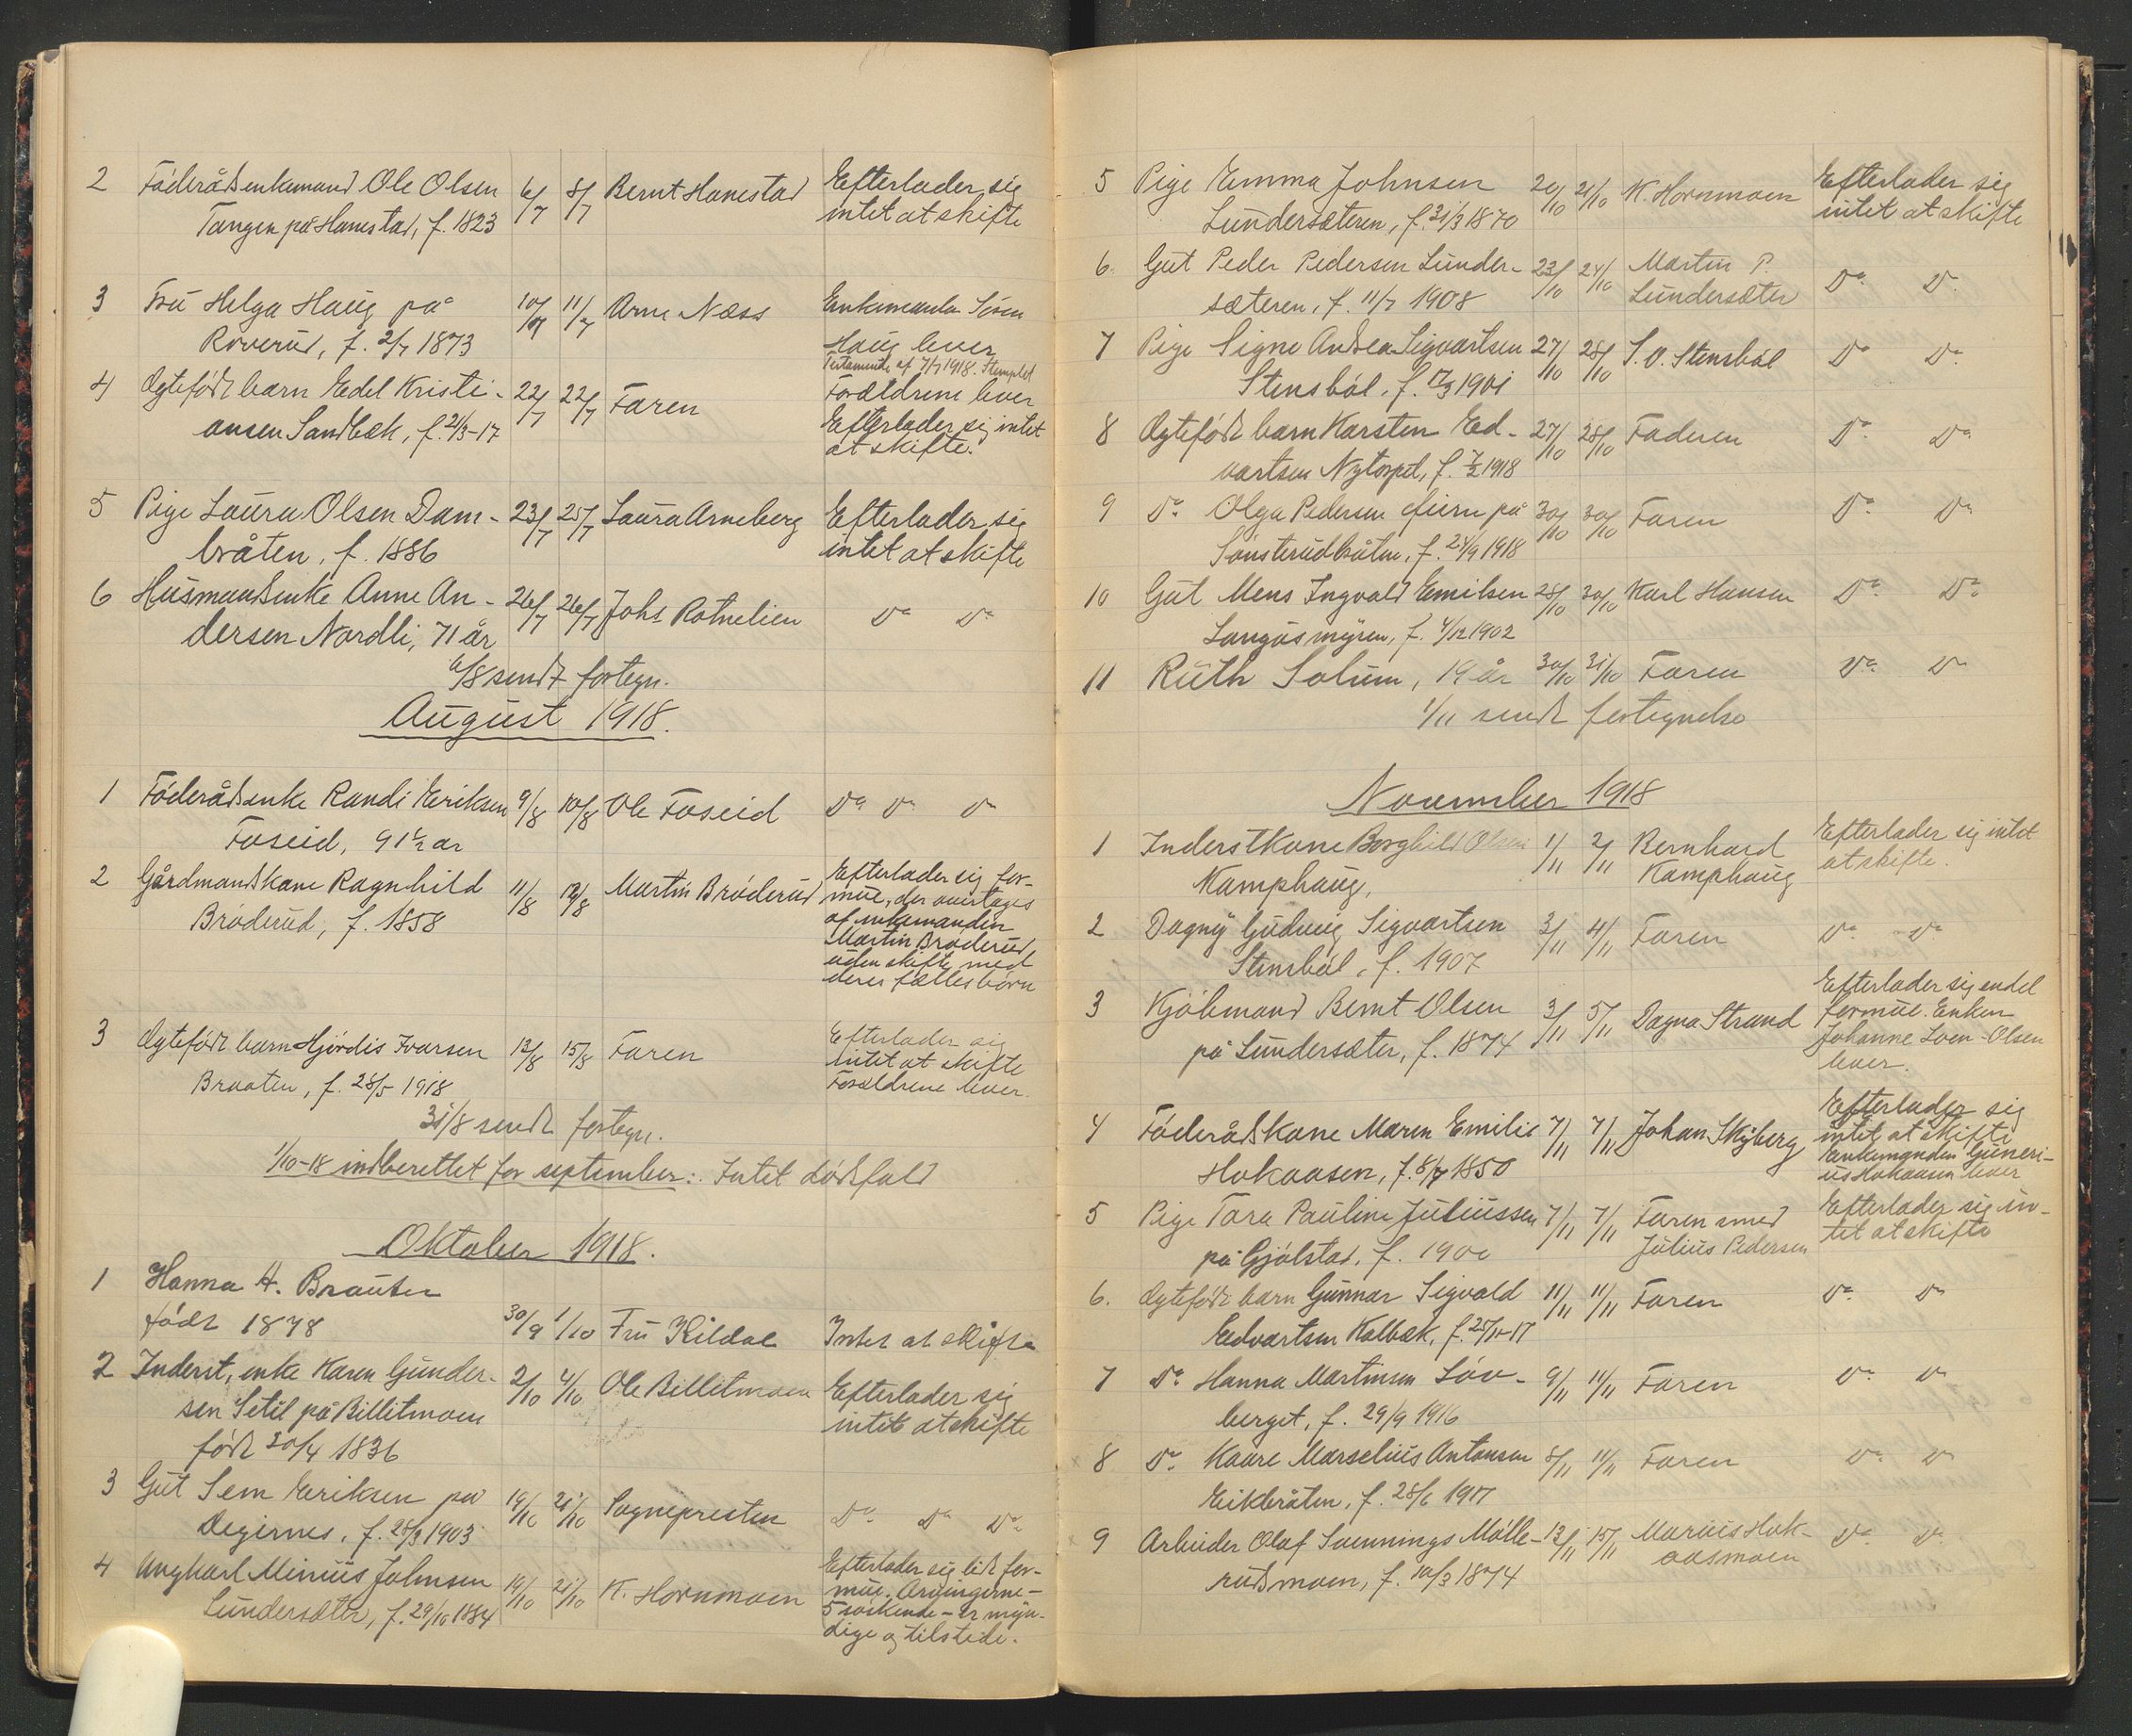 2 Föderådsenkemand Ole Olsen 6/7 8/7 Bernt Hanestad Efterlader sig
Tangen på Hanestad, f. 1823 intet at skifte
3 Fru Helga Haug på 10/7 11/7 Arne Næss Enkemanden
Roverud, f. 2/7 1873 Haug lever
Testamente af 7/7 1918. Stemplet
4 Ægtefödt barn Edel Kristi- 22/7 22/7 Faren Forældrene lever
ansen Sandbæk, f. 21/3-17 Efterlader sig intet
at skifte.
5 Pige Laura Olsen Dam- 23/7 25/7 Laura Arneberg Efterlader sig
bråten, f. 1886 intet at skifte
6 Husmandsenke Anne An- 26/7 26/7 Johs Rotnelien Do Do
dersen Nordli, 71 år
6/8 sendt fortegn.
August 1918.
1 Föderådsenke Randi Eriksen 9/8 10/8 Ole Foseid Do Do Do
Foseid, 91½ år
2 Gårdmandskone Ragnhild 11/8 12/8 Martin Bröderud Efterlader sig for-
Bröderud, f. 1858 mue, der overtages
af enkemanden
Martin Bröderud
uden skifte med
deres fællesbörn
3 Ægtefödt barn Hjördis Ivarsen 13/8 15/8 Faren Efterlader sig
Braaten, f. 28/5 1918 intet at skifte
Forældrene lever.
31/8 sendt fortegn.
1/10-18 indberettet for september: Intet dödsfald
Oktober 1918.
1 Hanna A. Brauter
födt 1878 30/9 1/10 Fru Kildal Intet at skifte
2 Inderst, enke Karen Gunder- 2/10 4/10 Ole Billitmoen Efterlader sig
sen Setil på Billitmoen intet at skifte
född 20/4 1836
3 Gut Sem Eriksen på 19/10 21/10 Sognepresten Do Do Do
Degernes, f. 28/3 1903
4 Ungkarl Minius Johnsen 19/10 21/10 K. Hornmoen Efterlader sig lidt for-
Lundersæter, f. 29/10 1884 mue. Arvingerne –
5 söskende – er myn-
dige og tilstede.
5 Pige Emma Johnsen 20/10 21/10 K. Hornmoen Efterlader sig
Lundersæteren, f. 31/3 1870 intet at skifte
6. Gut Peder Pedersen Lunder- 23/10 24/10 Martin P. Do Do
sæteren, f. 11/7 1908 Lundersæter
7 Pige Signe Andrea Sigvartsen 27/10 28/10 S. O. Stensböl Do Do
Stensböl, f. 1901
8 Ægtefödt barn Karsten Ed- 27/10 28/10 Faderen Do Do
vartsen Nytorpet, f. 7/2 1918
9 Do Olga Pedersen på 30/10 30/10 Faren Do Do
Sönsterudbråten, f. 24/9 1918
10 Gut Mens Ingvald Emilsen 28/10 30/10 Karl Hansen Do Do
Langåsmyren, f. 4/12 1902
11 Ruth Solum, 19 år 30/10 31/10 Faren Do Do
1/11 sendt fortegnelse
November 1918
1 Inderstkone Borghild Olsen 1/11 2/11 Bernhard Efterlader sig intet
Kamphaug, Kamphaug at skifte.
2 Dagny Gudveig Sigvartsen 3/11 4/11 Faren Do Do
Stensböl, f. 1907
3 Kjöbmand Bernt Olsen 3/11 5/11 Dagna Strand Efterlader sig endel
på Lundersæter, f. 1874 formue. Enken
Johanne Loen-Olsen
lever.
4 Föderådskone Maren Emilie 7/11 7/11 Johan Skyberg Efterlader sig
Hokaasen, f. 8/7 1850 intet at skifte
Enkemanden Guneri-
us Hokaasen lever
5 Pige Tora Pauline Juliussen 7/11 7/11 Faren smed Efterlader sig in-
på Gjölstad, f. 1900 Julius Pedersen tet at skifte
6. Ægtefödt barn Gunnar Sigvald 11/11 11/11 Faren Do Do
Edvartsen Kalbæk, f. 25/11-17
7 Do Hanna Martinsen Löv- 9/11 11/11 Faren Do Do
berget, f. 29/9 1916
8 Do Kaare Marselius Antonsen 8/11 11/11 Faren Do Do
Eikbråten, f. 28/6 1917
9 Arbeider Olaf Svennings Mölle- 13/11 15/11 Marius Hok- Do Do
rudsmoen, f. 10/3 1874 aasmoen